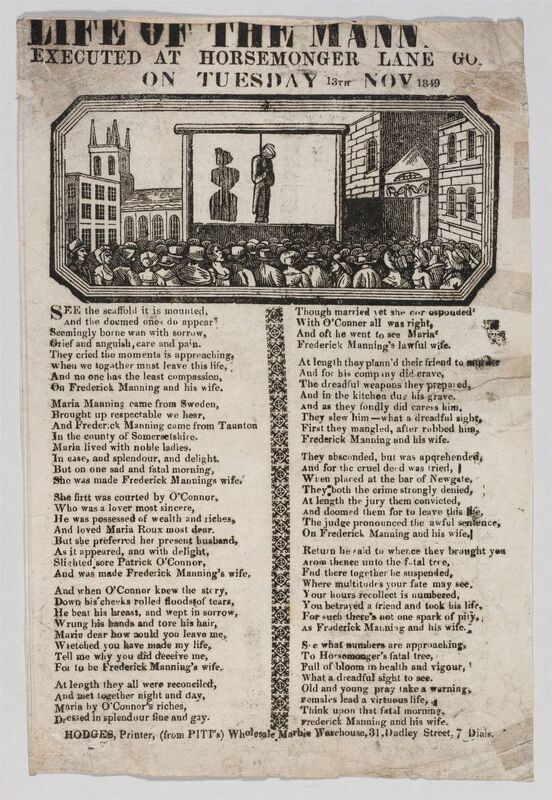 LIFE OF THE MANN
EXECUTED AT HORSEMONGER LANE GO
ON TUESDAY 13TH NOV 1849
SEE the scaffold it is mounted,
And the doomed ones do appear
Seemingly borne wan with sorrow,
Grief and anguish, care and pain.
They cried the moments is approaching,
When we together must leave this life,
And no one has the least compassion,
On Frederick Manning and his wife.
Maria Manning came from Sweden,
Brought up respectable we hear,
And Frederick Manning came from Taunton
In the county of Somersetshire.
Maria lived with noble ladies,
In ease, and splendour, and delight.
But on one sad and fatal morning,
She was made Frederick Mannings wife.
She firtt was courted by O'Connor,
Who was a lover most sincere,
He was possessed of wealth and riches,
And loved Maria Roux most dear.
But she preferred her present husband,
As it appeared, and with delight,
Slighted sore Patrick O'Connor,
And was made Frederick Manning's wife.
And when O'Connor knew the story,
Down his cheeks rolled floodsof tears,
He beat his breast, and wept in sorrow,
Wrung his hands and tore his hair,
Marie dear how could you leave me,
Wretched you have made my life,
Tell me why you did deceive me,
For to be Frederick Manning's wife.
At length they all were reconciled,
And met together night and day,
Maria by O'Connor's riches,
Dressed in splendour fine and gay.
Though married yet she cor esponded
With O'Conner all was right,
And oft he went to see Maria
Frederick Manning's lawful wife.
At length they plann'd their friend to murder
And for his company did crave,
The dreadful weapons they prepared,
And in the kitchen dug his grave.
And as they fondly did caress him,
They slew him—what a dreadful sight,
First they mangled, after robbed him,
Frederick Manning and his wife.
They absconded, but was apprehended,
And for the cruel deed was tried,
When placed at the bar of Newgate,
They both the crime strongly denied,
At length the jury them convicted,
And doomed them for to leave this life,
The judge pronounced the awful sentence,
On Frederick Manning and his wife.
Return he said to whence they brought you
From thence unto the fatal tree,
End there together be suspended,
Where multitudes your fate may see.
Your hours recollect is numbered,
You betrayed a friend and took his life,
For such there's not one spark of pity,
As Frederick Manning and his wife.
See what numbers are approaching,
To Horsemonger's fatal tree,
Full of bloom in health and vigour,
What a dreadful sight to see.
Old and young pray take a warning,
Females lead a virtuous life,
Think upon that fatal morning,
Frederick Manning and his wife.
HODGES, Printer, (from PITT's) Wholesale Marble Warehouse, 31, Dudley Street, 7 Dials.